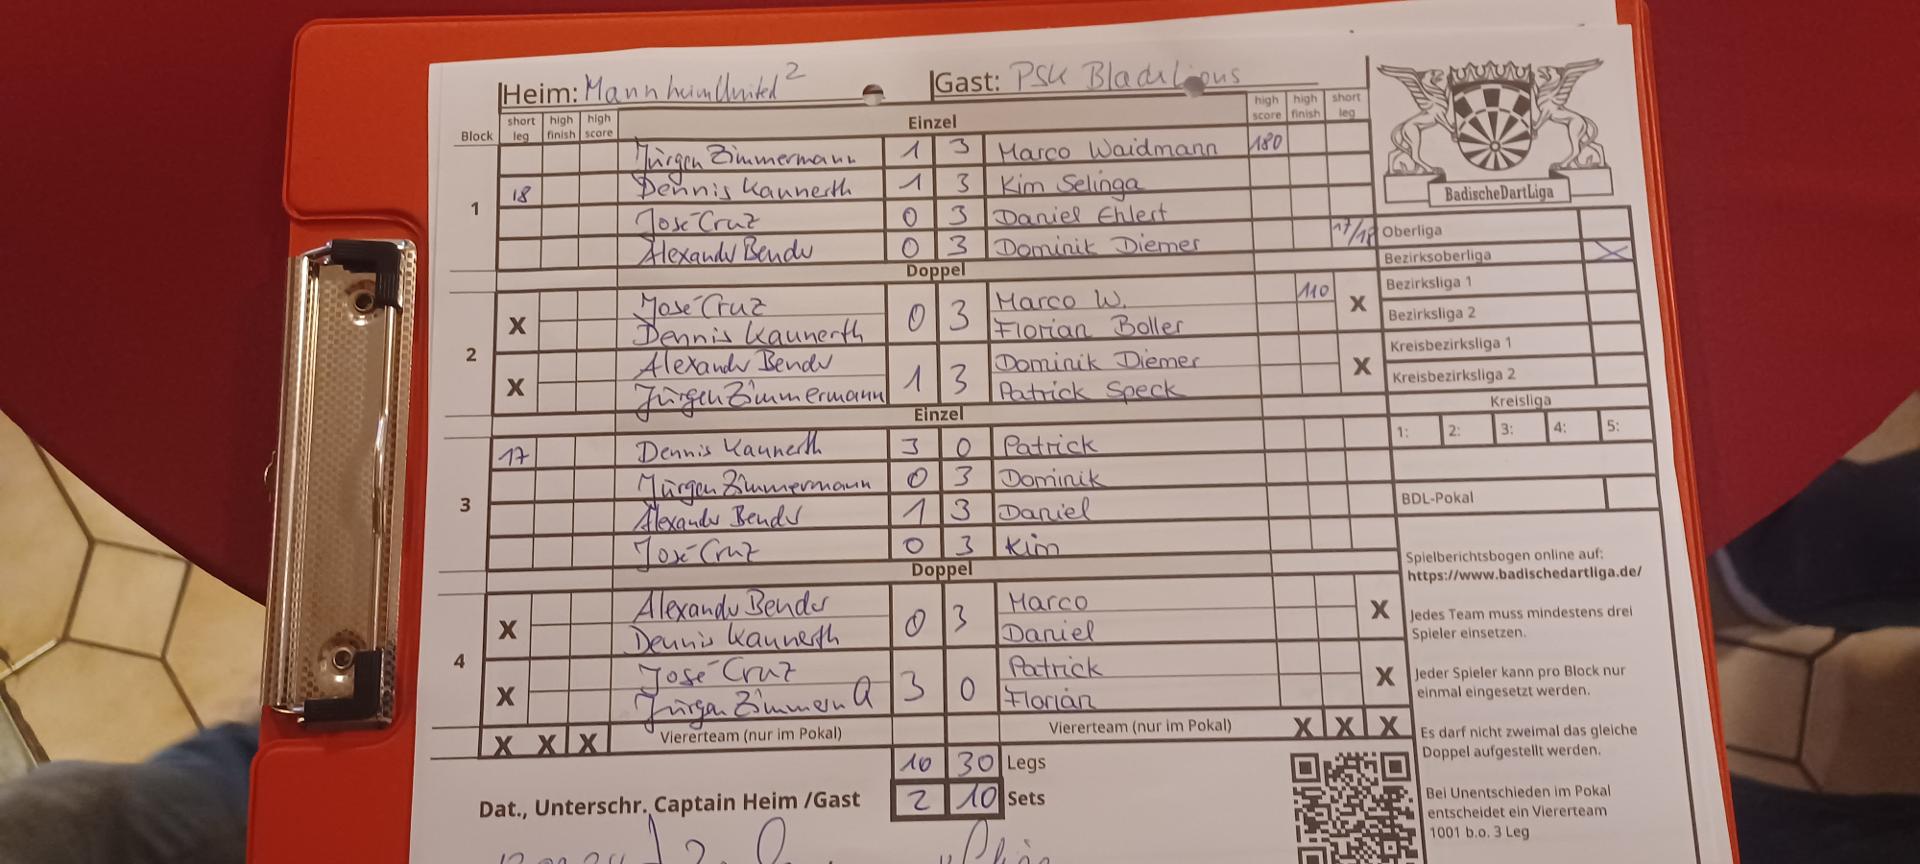 Heim: Mannheim United 2 Gast: PSK Bladelicous
Block short leg high finish high score Einzel high score high finish short leg
1
Jürgen Zimmermann 1 3 Marco Waidmann 180
18 Dennis Kannerth 1 3 Kim Selinga
José Cruz 0 3 Daniel Ehlert
Alexander Bender 0 3 Dominik Diemer 17/18
Doppel
2
X José Cruz 0 3 Marco W. 110 X
Dennis Kannerth Florian Boller
X Alexander Bender 1 3 Dominik Diemer X
Jürgen Zimmermann Patrick Speck
Einzel
3
17 Dennis Kannerth 3 0 Patrick
Jürgen Zimmermann 0 3 Dominik
Alexander Bender 1 3 Daniel
José Cruz 0 3 Kim
Doppel
4
X Alexander Bender 0 3 Marco X
Dennis Kannerth Daniel
X José Cruz 3 0 Patrick X
Jürgen Zimmermann Florian
X X X Viererteam (nur im Pokal) Viererteam (nur im Pokal) X X X
10 30 Legs
2 10 Sets
Dat., Unterschr. Captain Heim /Gast
BadischeDartLiga
Oberliga
Bezirksoberliga X
Bezirksliga 1
Bezirksliga 2
Kreisbezirksliga 1
Kreisbezirksliga 2
Kreisliga
1: 2: 3: 4: 5:
BDL-Pokal
Spielberichtsbogen online auf:
https://www.badischedartliga.de/
Jedes Team muss mindestens drei
Spieler einsetzen.
Jeder Spieler kann pro Block nur
einmal eingesetzt werden.
Es darf nicht zweimal das gleiche
Doppel aufgestellt werden.
Bei Unentschieden im Pokal
entscheidet ein Viererteam
1001 b.o. 3 Leg